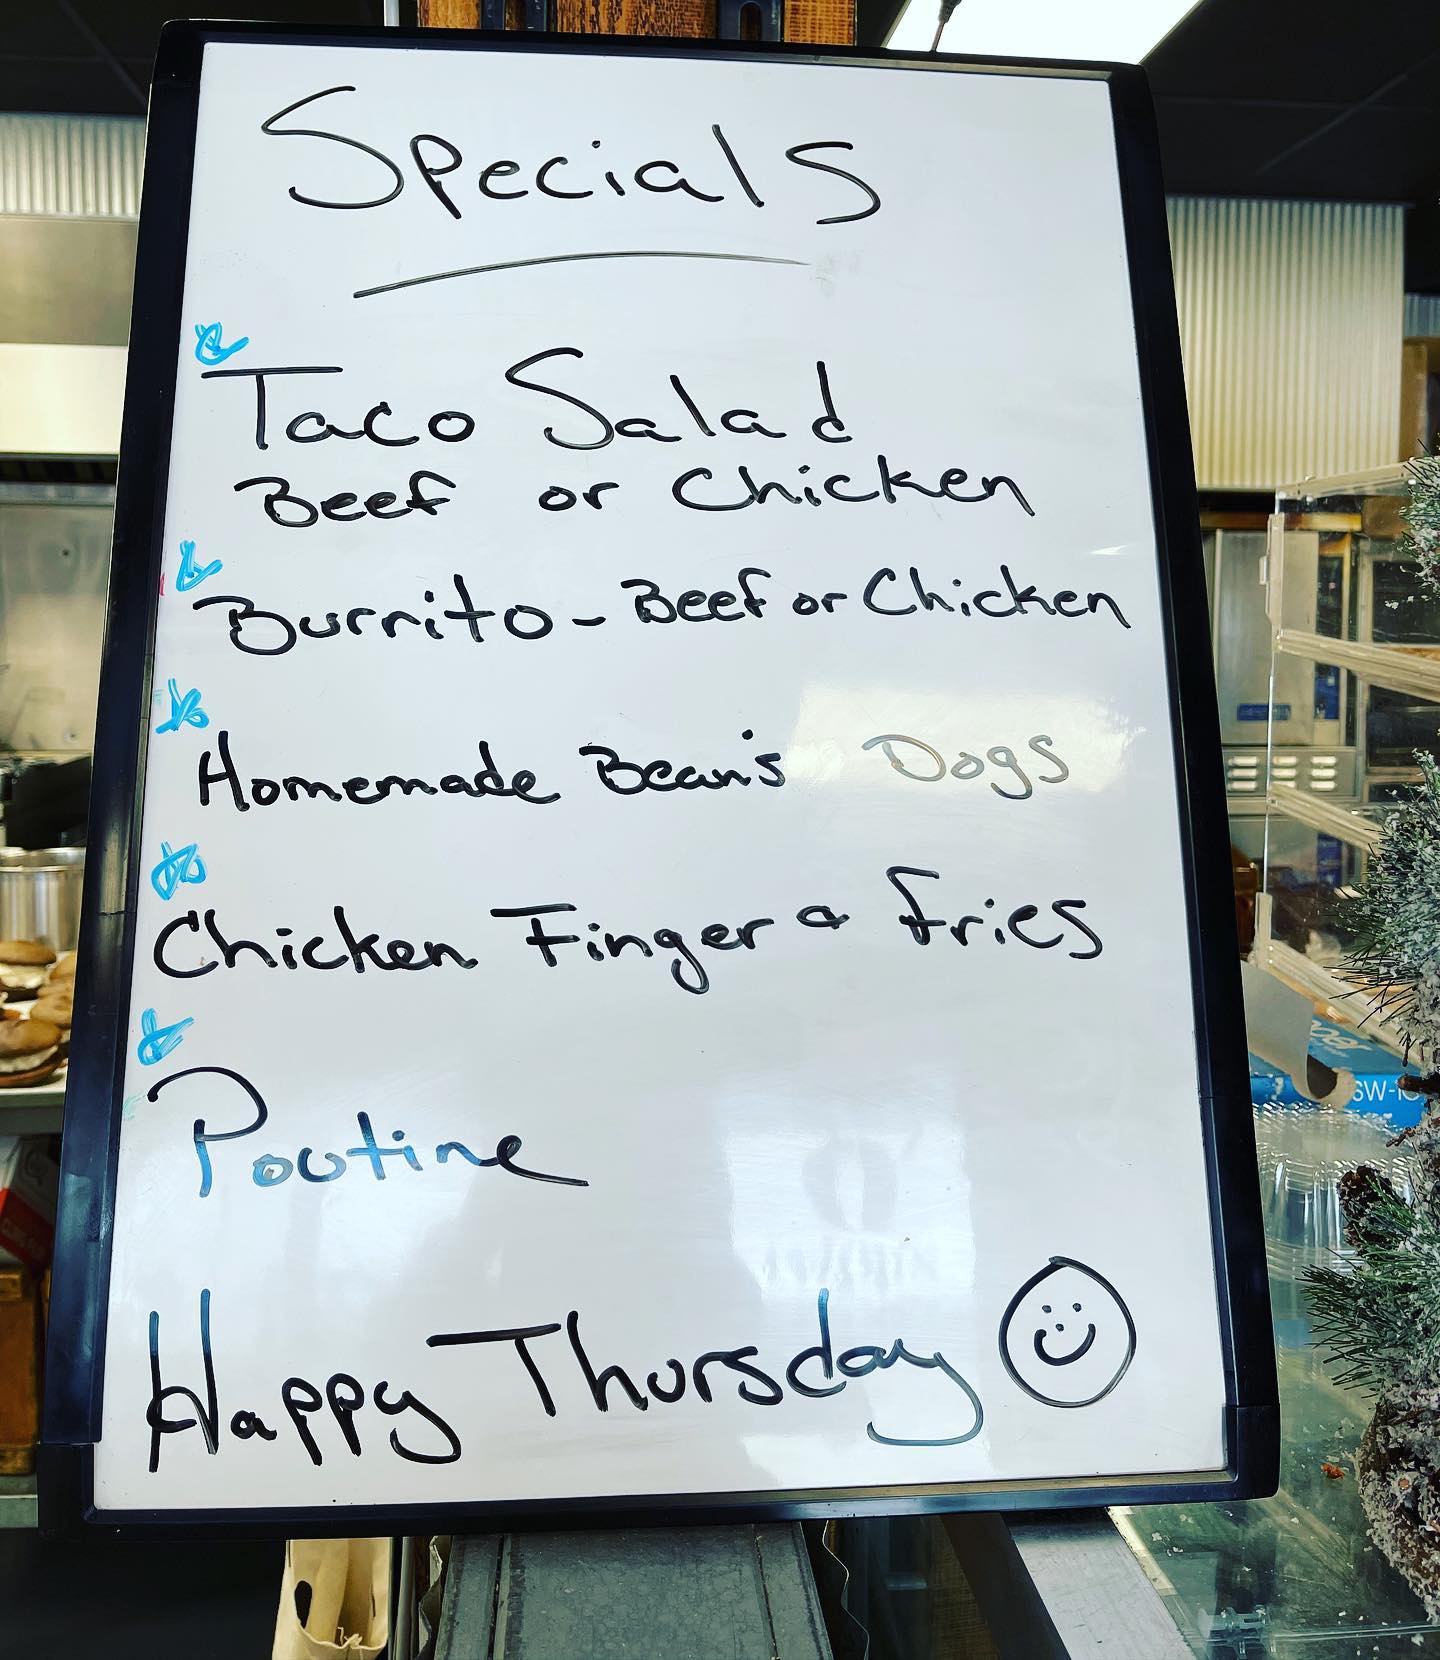 Specials
Taco Salad
Beef or Chicken
Burrito - Beef or Chicken
Homemade Bean's Dogs
Chicken Finger & Fries
Poutine
Happy Thursday
SW-10